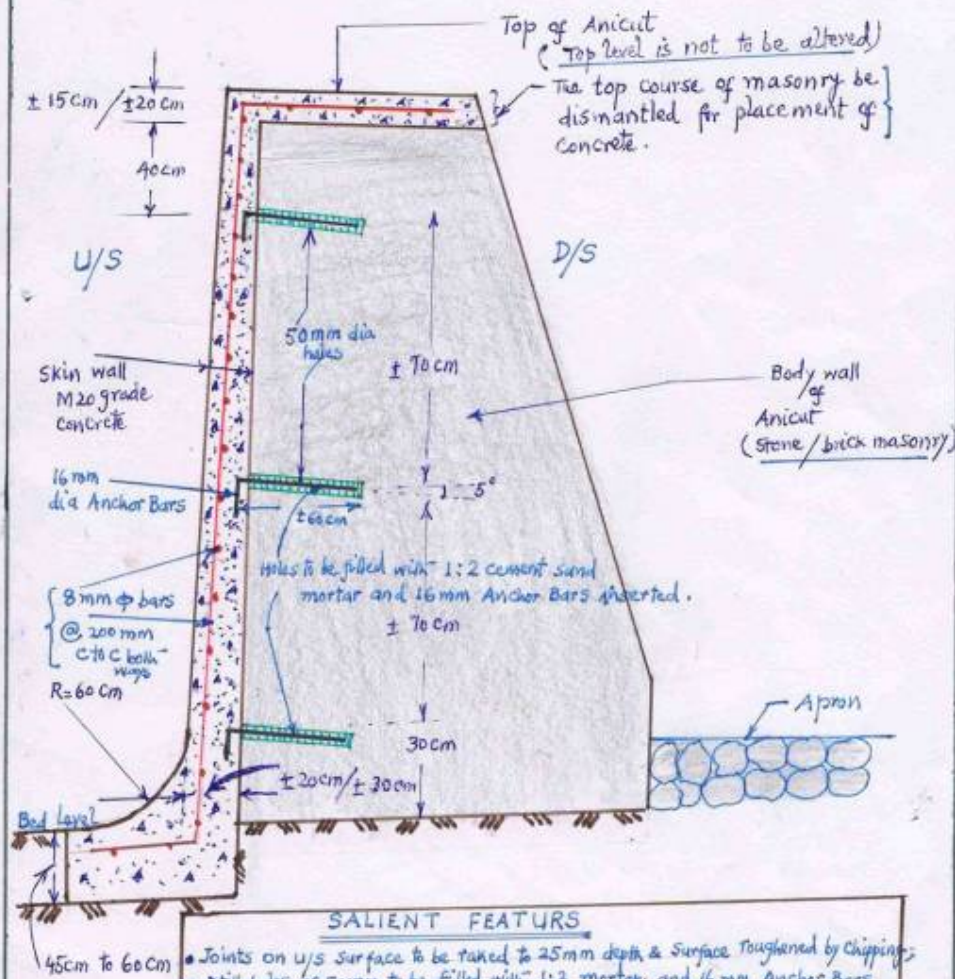 Top of Anicut
( Top level is not to be altered)
± 15cm / ±20cm
The top course of masonry be
dismantled for placement of
concrete.
40cm
U/S
D/S
50mm dia
holes
± 70cm
Skin wall
M20 grade
concrete
Body wall
of
Anicut
(Stone/brick masonry)
16mm
dia Anchor Bars
5°
±60cm
Holes to be filled with 1:2 cement sand
mortar and 16mm Anchor Bars inserted.
± 70cm
8mm ф bars
@ 200mm
C to C both
ways
R=60cm
Apron
30cm
±20cm/±30cm
Bed Level
45cm to 60cm
SALIENT FEATURS
• Joints on u/s surface to be raked to 25mm depth & Surface roughened by Chipping;
to be filled with 1:2 mortar and 16mm Anchor Bars